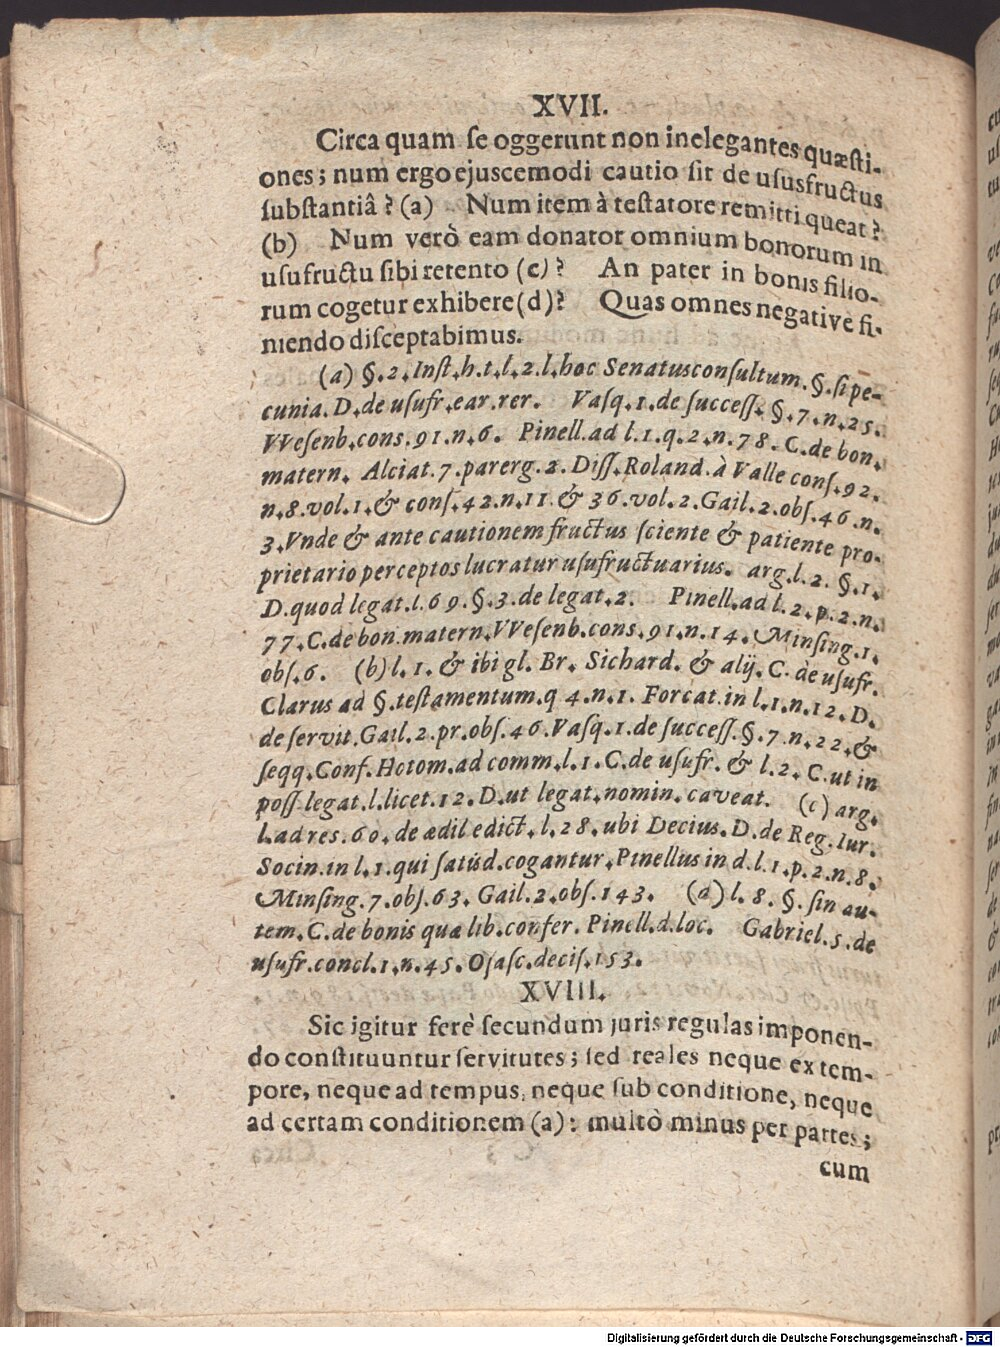 XVII.
Circa quam se oggerunt non inelegantes quæsti-
ones; num ergo ejuscemodi cautio sit de ususfructus
substantiâ? (a) Num item à testatore remitti queat?
(b) Num verò eam donator omnium bonorum in
usufructu sibi retento (c)? An pater in bonis filio-
rum cogetur exhibere (d)? Quas omnes negative fi-
niendo disceptabimus.
(a) §.2. Inst. h.t. l.2. l. hoc Senatusconsultum. §. si pe-
cunia. D. de usufr. ear. rer. Vasq. 1. de success. §.7. n.25.
VVesenb. cons. 91. n.6. Pinell. ad l.1. q.2. n.78. C. de bon.
matern. Alciat. 7. parerg. 2. Diss. Roland. à Valle cons. 92.
n.8. vol.1. & cons. 42. n.11. & 36. vol.2. Gail. 2. obs. 46. n.
3. Vnde & ante cautionem fructus sciente & patiente pro-
prietario perceptos lucratur usufructuarius. arg. l.2. §.1.
D. quod legat. l.69. §.3. de legat. 2. Pinell. ad l.2. p.2. n.
77. C. de bon. matern. VVesenb. cons. 91. n.14. Minsing. 1.
obs. 6. (b) l.1. & ibi gl. Br. Sichard. & alij. C. de usufr.
Clarus ad §. testamentum. q 4. n.1. Forcat. in l.1. n.12. D.
de servit. Gail. 2. pr. obs. 46. Vasq. 1. de success. §.7. n.22. &
seqq. Conf. Hotom. ad comm. l.1. C. de usufr. & l.2. C. ut in
poss legat. l. licet. 12. D. ut legat. nomin. caveat. (c) arg.
l. ad res. 60. de ædil edict. l.28. ubi Decius. D. de Reg. Iur.
Socin. in l.1. qui satisd. cogantur. Pinellus in d. l.1. p.2. n.8.
Minsing. 7. obs. 63. Gail. 2. obs. 143. (d) l.8. §. sin au-
tem. C. de bonis quæ lib. confer. Pinell. d. loc. Gabriel. 5. de
usufr. concl. 1. n.45. Osasc. decis. 153.
XVIII.
Sic igitur ferè secundum juris regulas imponen-
do constituuntur servitutes; sed reales neque ex tem-
pore, neque ad tempus, neque sub conditione, neque
ad certam conditionem (a): multò minus per partes;
cum
Digitalisierung gefördert durch die Deutsche Forschungsgemeinschaft - DFG